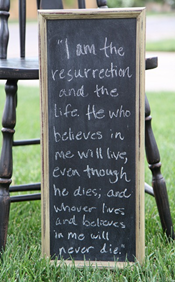 "I am the
resurrection
and the
life. He who
believes in
me will live,
even though
he dies; and
whover lives
and believes
in me will
never die."